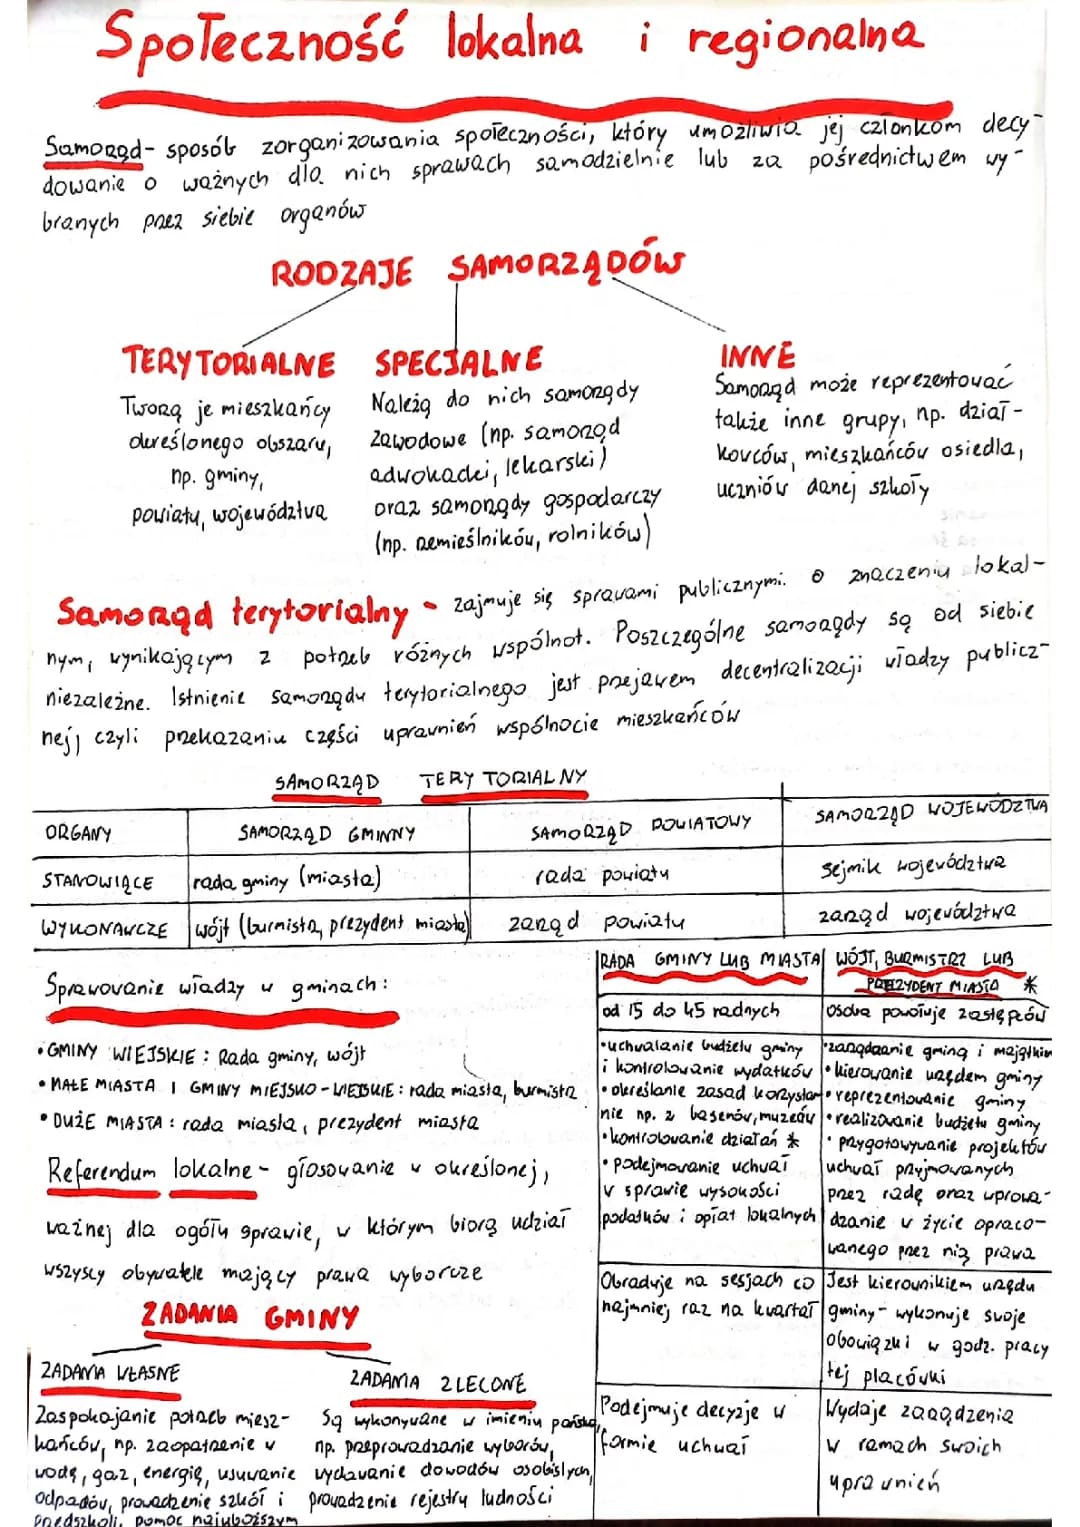 Społeczność lokalna i regionalna
Samorząd - sposób zorganizowania społeczności, który umożliwia jej członkom decy-
dowanie o ważnych dla nich sprawach samodzielnie lub za pośrednictwem wy-
branych przez siebie organów
RODZAJE SAMORZĄDÓW
TERYTORIALNE
Tworzą je mieszkańcy
określonego obszaru,
np. gminy,
powiatu, województwa
SPECJALNE
Należą do nich samorządy
zawodowe (np. samorząd
adwokacki, lekarski)
oraz samorządy gospodarczy
(np. rzemieślników, rolników)
INNE
Samorząd może reprezentować
także inne grupy, np. dział-
kowców, mieszkańców osiedla,
uczniów danej szkoły
Samorząd terytorialny - zajmuje się sprawami publicznymi o znaczeniu lokal-
nym, wynikającym z potrzeb różnych wspólnot. Poszczególne samorządy są od siebie
niezależne. Istnienie samorządu terytorialnego jest przejawem decentralizacji władzy publicz-
nej, czyli przekazaniu części uprawnień wspólnocie mieszkańców
SAMORZĄD TERYTORIALNY
ORGANY SAMORZĄD GMINNY SAMORZĄD POWIATOWY SAMORZĄD WOJEWÓDZTWA
STANOWIĄCE rada gminy (miasta) rada powiatu sejmik województwa
WYKONAWCZE wójt (burmistrz, prezydent miasta) zarząd powiatu zarząd województwa
Sprawowanie władzy w gminach:
• GMINY WIEJSKIE: Rada gminy, wójt
• MAŁE MIASTA I GMINY MIEJSKO-WIEJSKIE: rada miasta, burmistrz
• DUŻE MIASTA: rada miasta, prezydent miasta
Referendum lokalne - głosowanie w określonej,
ważnej dla ogółu sprawie, w którym biorą udział
wszyscy obywatele mający prawa wyborcze
ZADANIA GMINY
ZADANIA WŁASNE
Zaspokajanie potrzeb miesz-
kańców, np. zaopatrzenie w
wodę, gaz, energię, usuwanie
odpadów, prowadzenie szkół i
przedszkoli, pomoc najuboższym
ZADANIA ZLECONE
Są wykonywane w imieniu państwa,
np. przeprowadzanie wyborów,
wydawanie dowodów osobistych,
prowadzenie rejestru ludności
RADA GMINY LUB MIASTA
od 15 do 45 radnych
• uchwalanie budżetu gminy
i kontrolowanie wydatków
• określanie zasad korzysta-
nie np. z basenów, muzeów
• kontrolowanie działań *
• podejmowanie uchwał
w sprawie wysokości
podatków i opłat lokalnych
Obraduje na sesjach co
najmniej raz na kwartał
Podejmuje decyzje w
formie uchwał
WÓJT, BURMISTRZ LUB
PREZYDENT MIASTA *
osoba powołuje zastępców
• zarządzanie gminą i majątkiem
• kierowanie urzędem gminy
• reprezentowanie gminy
• realizowanie budżetu gminy
• przygotowywanie projektów
uchwał przyjmowanych
przez radę oraz wprowa-
dzanie w życie opraco-
wanego przez nią prawa
Jest kierownikiem urzędu
gminy - wykonuje swoje
obowiązki w godz. pracy
tej placówki
Wydaje zarządzenia
w ramach swoich
uprawnień